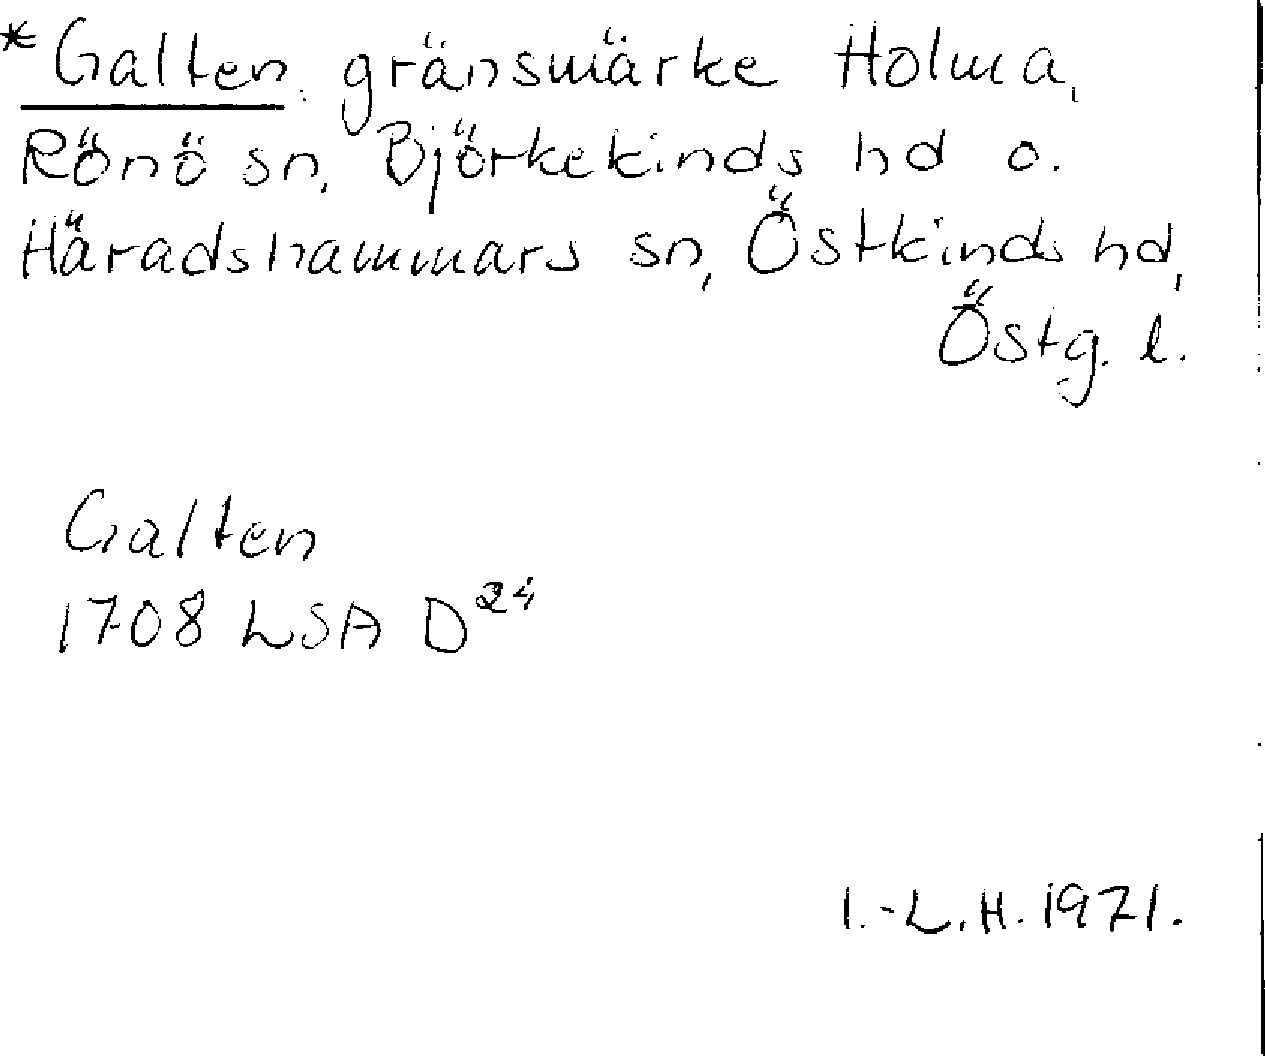 *Galten, gränsmärke Holma,
Rönö sn, Björkekinds hd o.
Häradshammars sn, Östkinds hd,
Östg. l.
Galten
1708 LSA D24
I.-L.H. 1971.